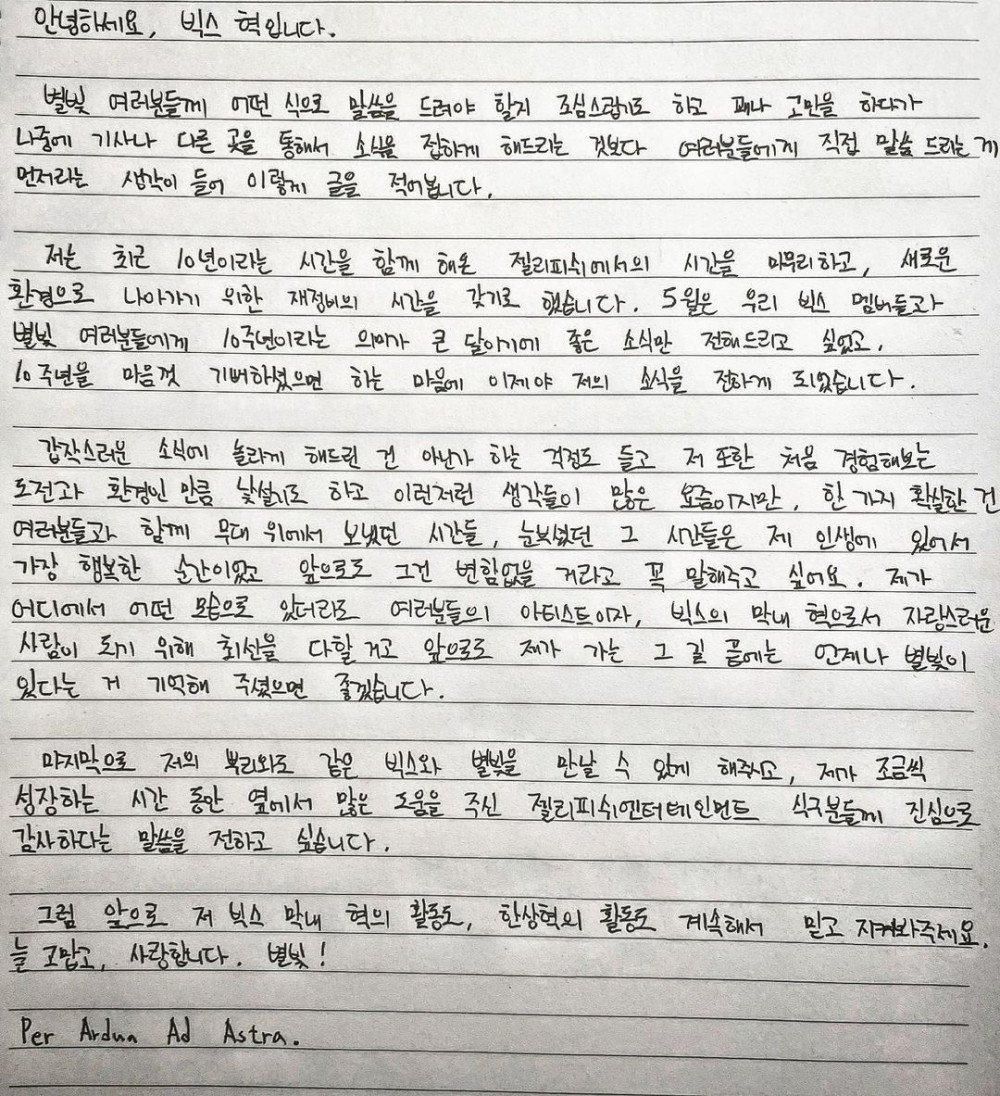 안녕하세요, 빅스 혁입니다.
별빛 여러분들께 어떤 식으로 말씀을 드려야 할지 조심스럽기도 하고 꽤나 고민을 하다가
나중에 기사나 다른 곳을 통해서 소식을 접하게 해드리는 것보다 여러분들에게 직접 말씀 드리는게
먼저라는 생각이 들어 이렇게 글을 적어봅니다.
저는 최근 10년이라는 시간을 함께 해온 젤리피쉬에서의 시간을 마무리하고, 새로운
환경으로 나아가기 위한 재정비의 시간을 갖기로 했습니다. 5월은 우리 빅스 멤버들과
별빛 여러분들에게 10주년이라는 의미가 큰 달이기에 좋은 소식만 전해드리고 싶었고,
10주년을 마음껏 기뻐하셨으면 하는 마음에 이제야 저의 소식을 전하게 되었습니다.
갑작스러운 소식에 놀라게 해드린 건 아닌가 하는 걱정도 들고 저 또한 처음 경험해보는
도전과 환경인 만큼 낯설기도 하고 이런저런 생각들이 많은 요즘이지만, 한 가지 확실한 건
여러분들과 함께 무대 위에서 보냈던 시간들, 눈부셨던 그 시간들은 제 인생에 있어서
가장 행복한 순간이었고 앞으로도 그건 변함없을 거라고 꼭 말해주고 싶어요. 제가
어디에서 어떤 모습으로 있더라도 여러분들의 아티스트이자, 빅스의 막내 혁으로서 자랑스러운
사람이 되기 위해 최선을 다할 거고 앞으로도 제가 가는 그 길 끝에는 언제나 별빛이
있다는 거 기억해 주셨으면 좋겠습니다.
마지막으로 저의 뿌리와도 같은 빅스와 별빛을 만날 수 있게 해주시고, 제가 조금씩
성장하는 시간 동안 옆에서 많은 도움을 주신 젤리피쉬엔터테인먼트 식구분들께 진심으로
감사하다는 말씀을 전하고 싶습니다.
그럼 앞으로 저 빅스 막내 혁의 활동도, 한상혁의 활동도 계속해서 믿고 지켜봐주세요.
늘 고맙고, 사랑합니다. 별빛!
Per Ardua Ad Astra.